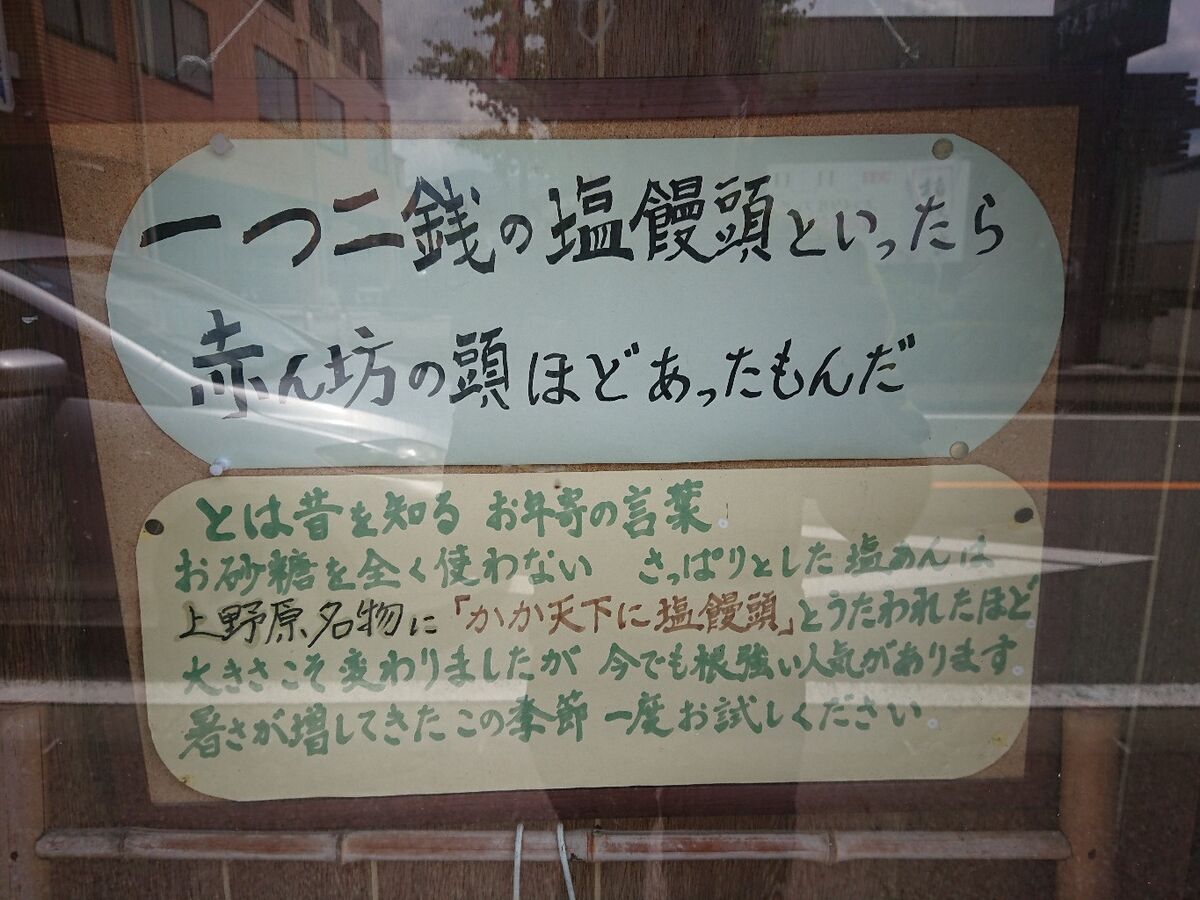 一つ二銭の塩饅頭といったら
赤ん坊の頭ほどあったもんだ
とは昔を知る お年寄の言葉。
お砂糖を全く使わない さっぱりとした塩あんは
上野原名物に「かか天下に塩饅頭」とうたわれたほど。
大きさこそ変わりましたが 今でも根強い人気があります。
暑さが増してきたこの季節 一度お試しください。